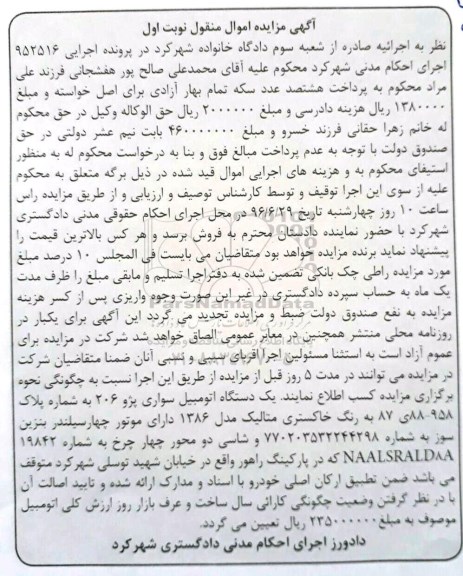 آگهی مزایده اموال منقول نوبت اول
نظر به اجرائیه صادره از شعبه سوم دادگاه خانواده شهرکرد در پرونده اجرایی ۹۵۲۵۱۶
اجرای احکام مدنی شهرکرد محکوم علیه آقای محمدعلی صالح پور هفشجانی فرزند علی
مراد محکوم به پرداخت هشتصد عدد سکه تمام بهار آزادی برای اصل خواسته و مبلغ
۱۳۸۰۰۰۰ ریال هزینه دادرسی و مبلغ ۲۰۰۰۰۰۰ ریال حق الوکاله وکیل در حق محکوم
له خانم زهرا حقانی فرزند خسرو و مبلغ ۴۶۰۰۰۰۰۰۰ بابت نیم عشر دولتی در حق
صندوق دولت با توجه به عدم پرداخت مبالغ فوق و بنا به درخواست محکوم له به منظور
استیفای محکوم به و هزینه های اجرایی اموال قید شده در ذیل برگه متعلق به محکوم
علیه از سوی این اجرا توقیف و توسط کارشناس توصیف و ارزیابی و از طریق مزایده راس
ساعت ۱۰ روز چهارشنبه تاریخ ۹۶/۶/۲۹ در محل اجرای احکام حقوقی مدنی دادگستری
شهرکرد با حضور نماینده دادستان محترم به فروش برسد و هر کس بالاترین قیمت را
پیشنهاد نماید برنده مزایده خواهد بود متقاضیان می بایست فی المجلس ۱۰ درصد مبلغ
مورد مزایده راطی چک بانکی تضمین شده به دفتراجرا تسلیم و مابقی مبلغ را ظرف مدت
یک ماه به حساب سپرده دادگستری در غیر این صورت وجوه واریزی پس از کسر هزینه
مزایده به نفع صندوق دولت ضبط و مزایده تجدید می گردد این آگهی برای یکبار در
روزنامه محلی منتشر همچنین در معابر عمومی الصاق خواهد شد شرکت در مزایده برای
عموم آزاد است به استثنا مسئولین اجرا اقربای سببی و نسبی آنان ضمنا متقاضیان شرکت
در مزایده می توانند در مدت ۵ روز قبل از مزایده از طریق این اجرا نسبت به چگونگی نحوه
برگزاری مزایده کسب اطلاع نمایند. یک دستگاه اتومبیل سواری پژو ۲۰۶ به شماره پلاک
۹۵۸-۸۸ی ۸۷ به رنگ خاکستری متالیک مدل ۱۳۸۶ دارای موتور چهارسیلندر بنزین
سوز به شماره ۷۷۰۲۰۳۵۳۲۲۴۴۲۹۸ و شاسی دو محور چهار چرخ به شماره ۱۹۸۴۲
NAALSRALD۸A که در پارکینگ راهور واقع در خیابان شهید توسلی شهرکرد متوقف
می باشد ضمن تطبیق ارکان اصلی خودرو با اسناد و مدارک ارائه شده و تایید اصالت آن
با در نظر گرفتن وضعیت چگونگی کارائی سال ساخت و عرف بازار روز ارزش کلی اتومبیل
موصوف به مبلغ۲۳۵۰۰۰۰۰۰ ریال تعیین می گردد.
دادورز اجرای احکام مدنی دادگستری شهرکرد
ParsNamadData